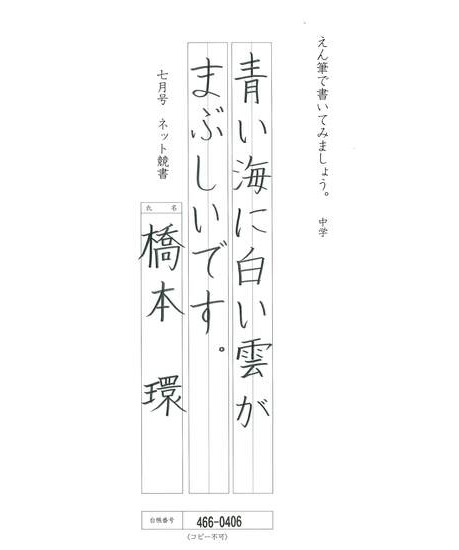 えん筆で書いてみましょう。 中学
青い海に白い雲が
まぶしいです。
七月号 ネット競書
氏名
橋本 環
台帳番号 466-0406
〈コピー不可〉